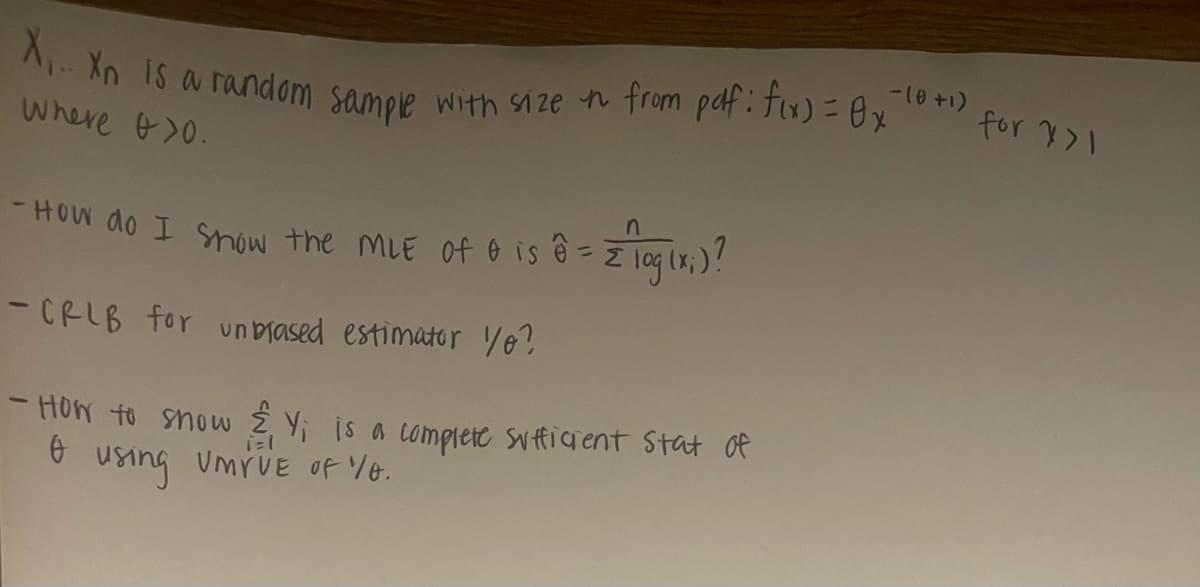 X₁.. Xn is a random sample with size n from pdf: f(x) = θx^-(θ+1) for x>1
where θ>0.
- How do I show the MLE of θ is θ̂ = n / Σ log(xᵢ)?
- CRLB for unbiased estimator 1/θ?
- How to show Σᵢ₌₁ⁿ Yᵢ is a complete sufficient stat of
θ using UMVUE of 1/θ.